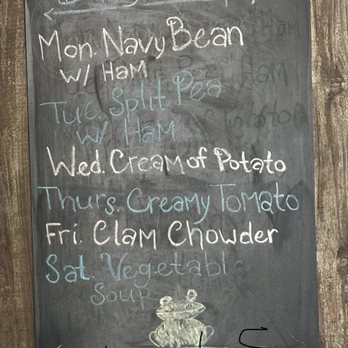 Mon. Navy Bean
w/ Ham
Tue. Split Pea
w/ Ham
Wed. Cream of Potato
Thurs. Creamy Tomato
Fri. Clam Chowder
Sat. Vegetable
Soup